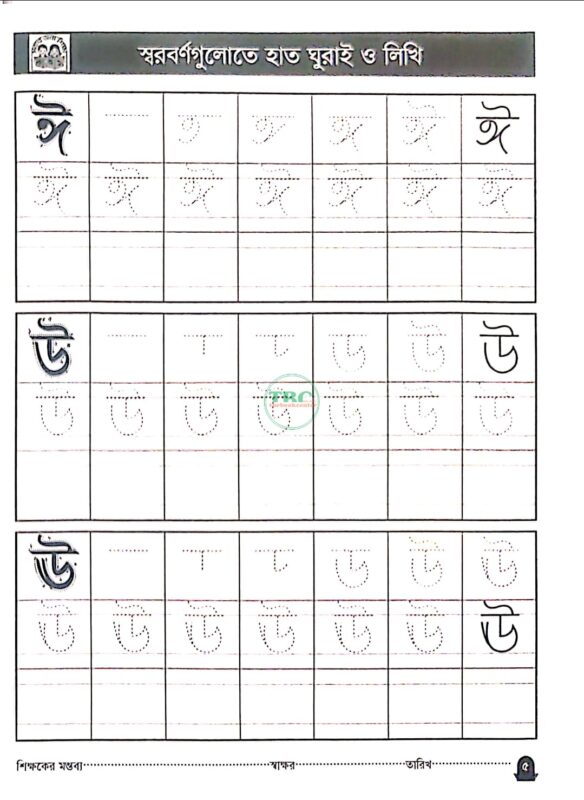 স্বরবর্ণগুলোতে হাত ঘুরাই ও লিখি
ঈ ঈ ঈ
ঈ ঈ ঈ ঈ ঈ ঈ ঈ
উ উ উ
উ উ উ উ উ উ উ
TRC
ঊ ঊ ঊ
ঊ ঊ ঊ ঊ ঊ ঊ ঊ
শিক্ষকের মন্তব্য স্বাক্ষর তারিখ ৫